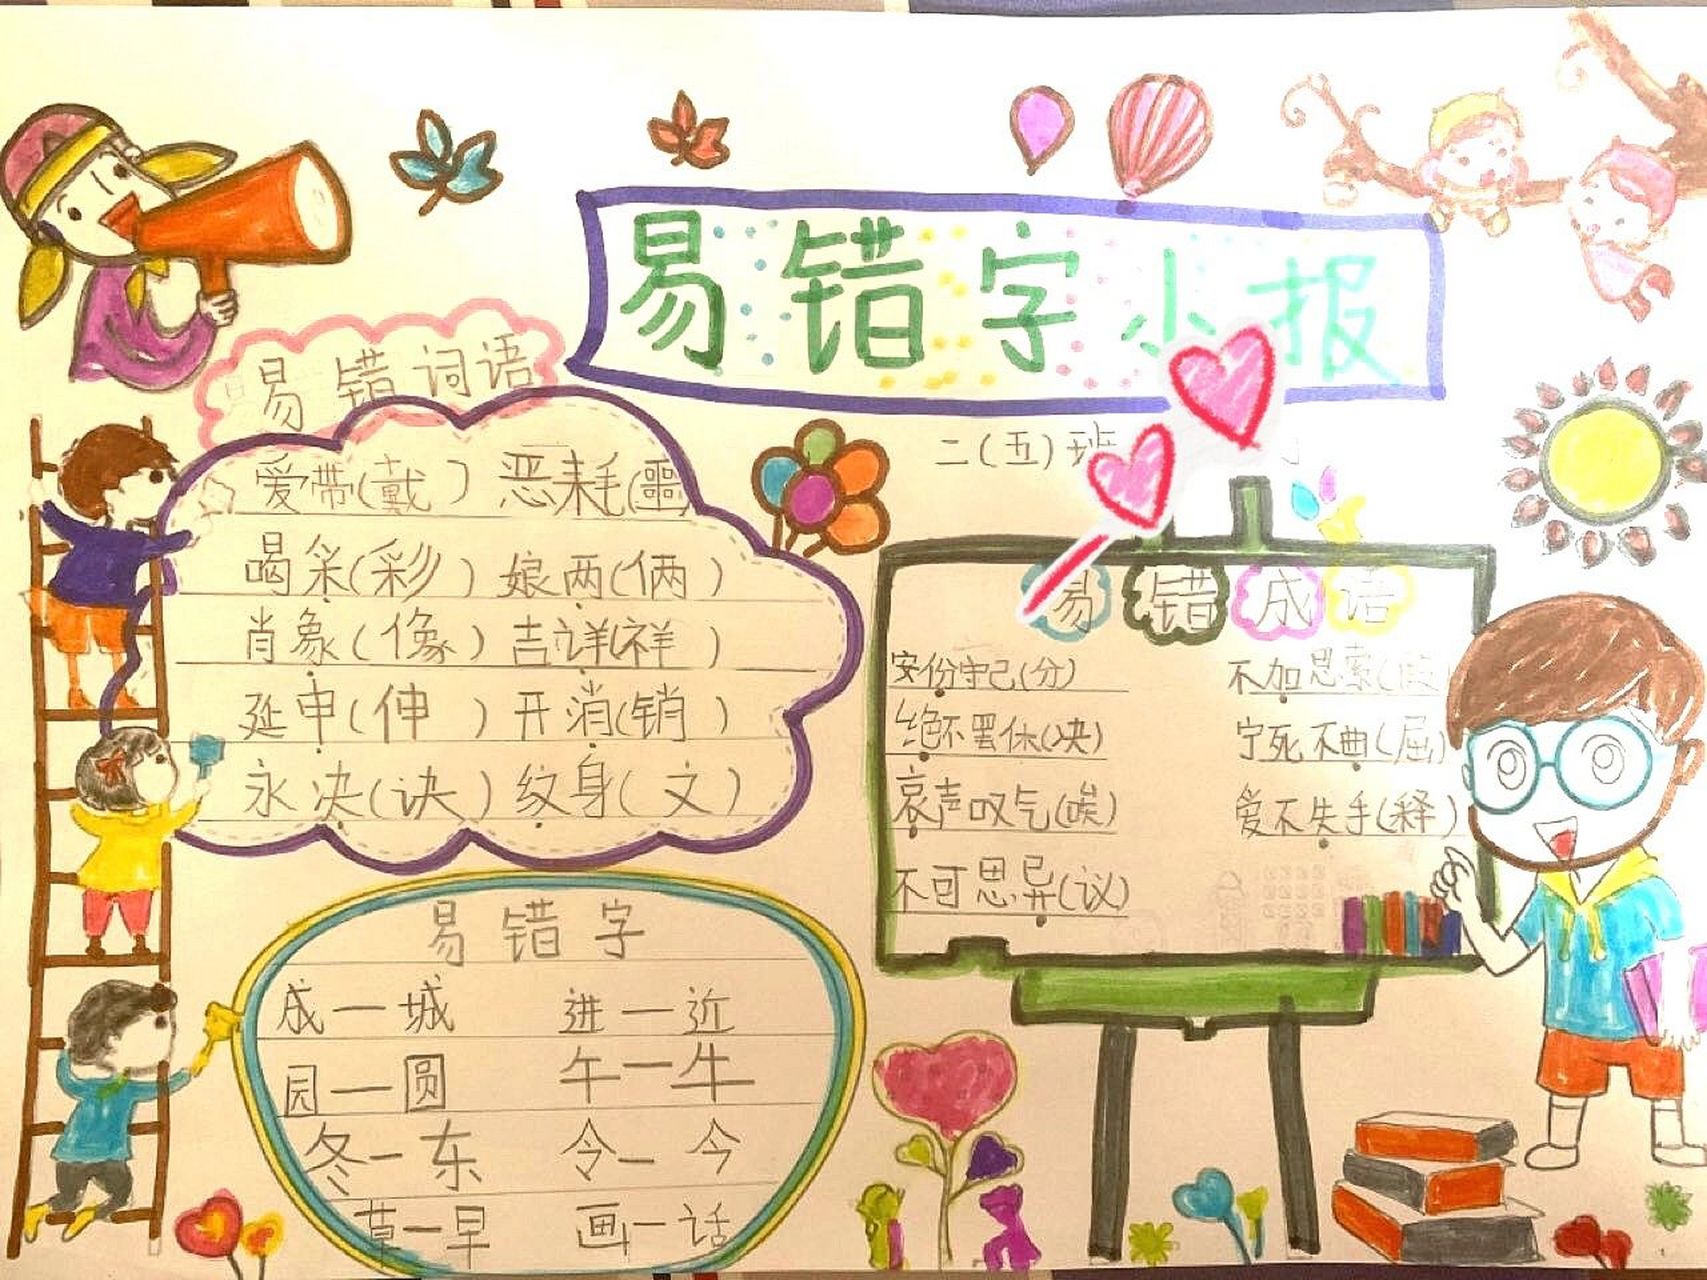 易错字小报
二(五)班
易错词语
爱带(戴) 恶耗(噩
喝采(彩) 娘两(俩)
肖象(像) 吉详(祥)
延申(伸) 开消(销)
永决(诀) 纹身(文)
易错成语
安份守己(分) 不加思索(
绝不罢休(决) 宁死不曲(屈)
哀声叹气(唉) 爱不失手(释)
不可思异(议)
易错字
成一城 进一近
园一圆 午一牛
冬一东 令一今
草一早 画一话